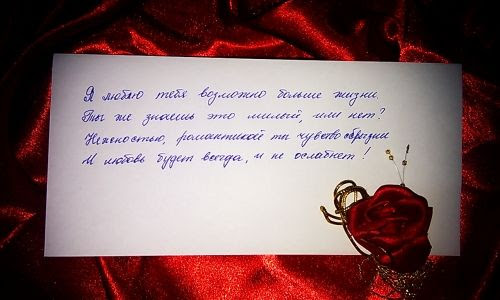 Я люблю тебя возможно больше жизни.
Ты же знаешь это милый, или нет?
Нежностью, романтикой ты чувства обрязни
И любовь будет всегда, и не ослабнет!